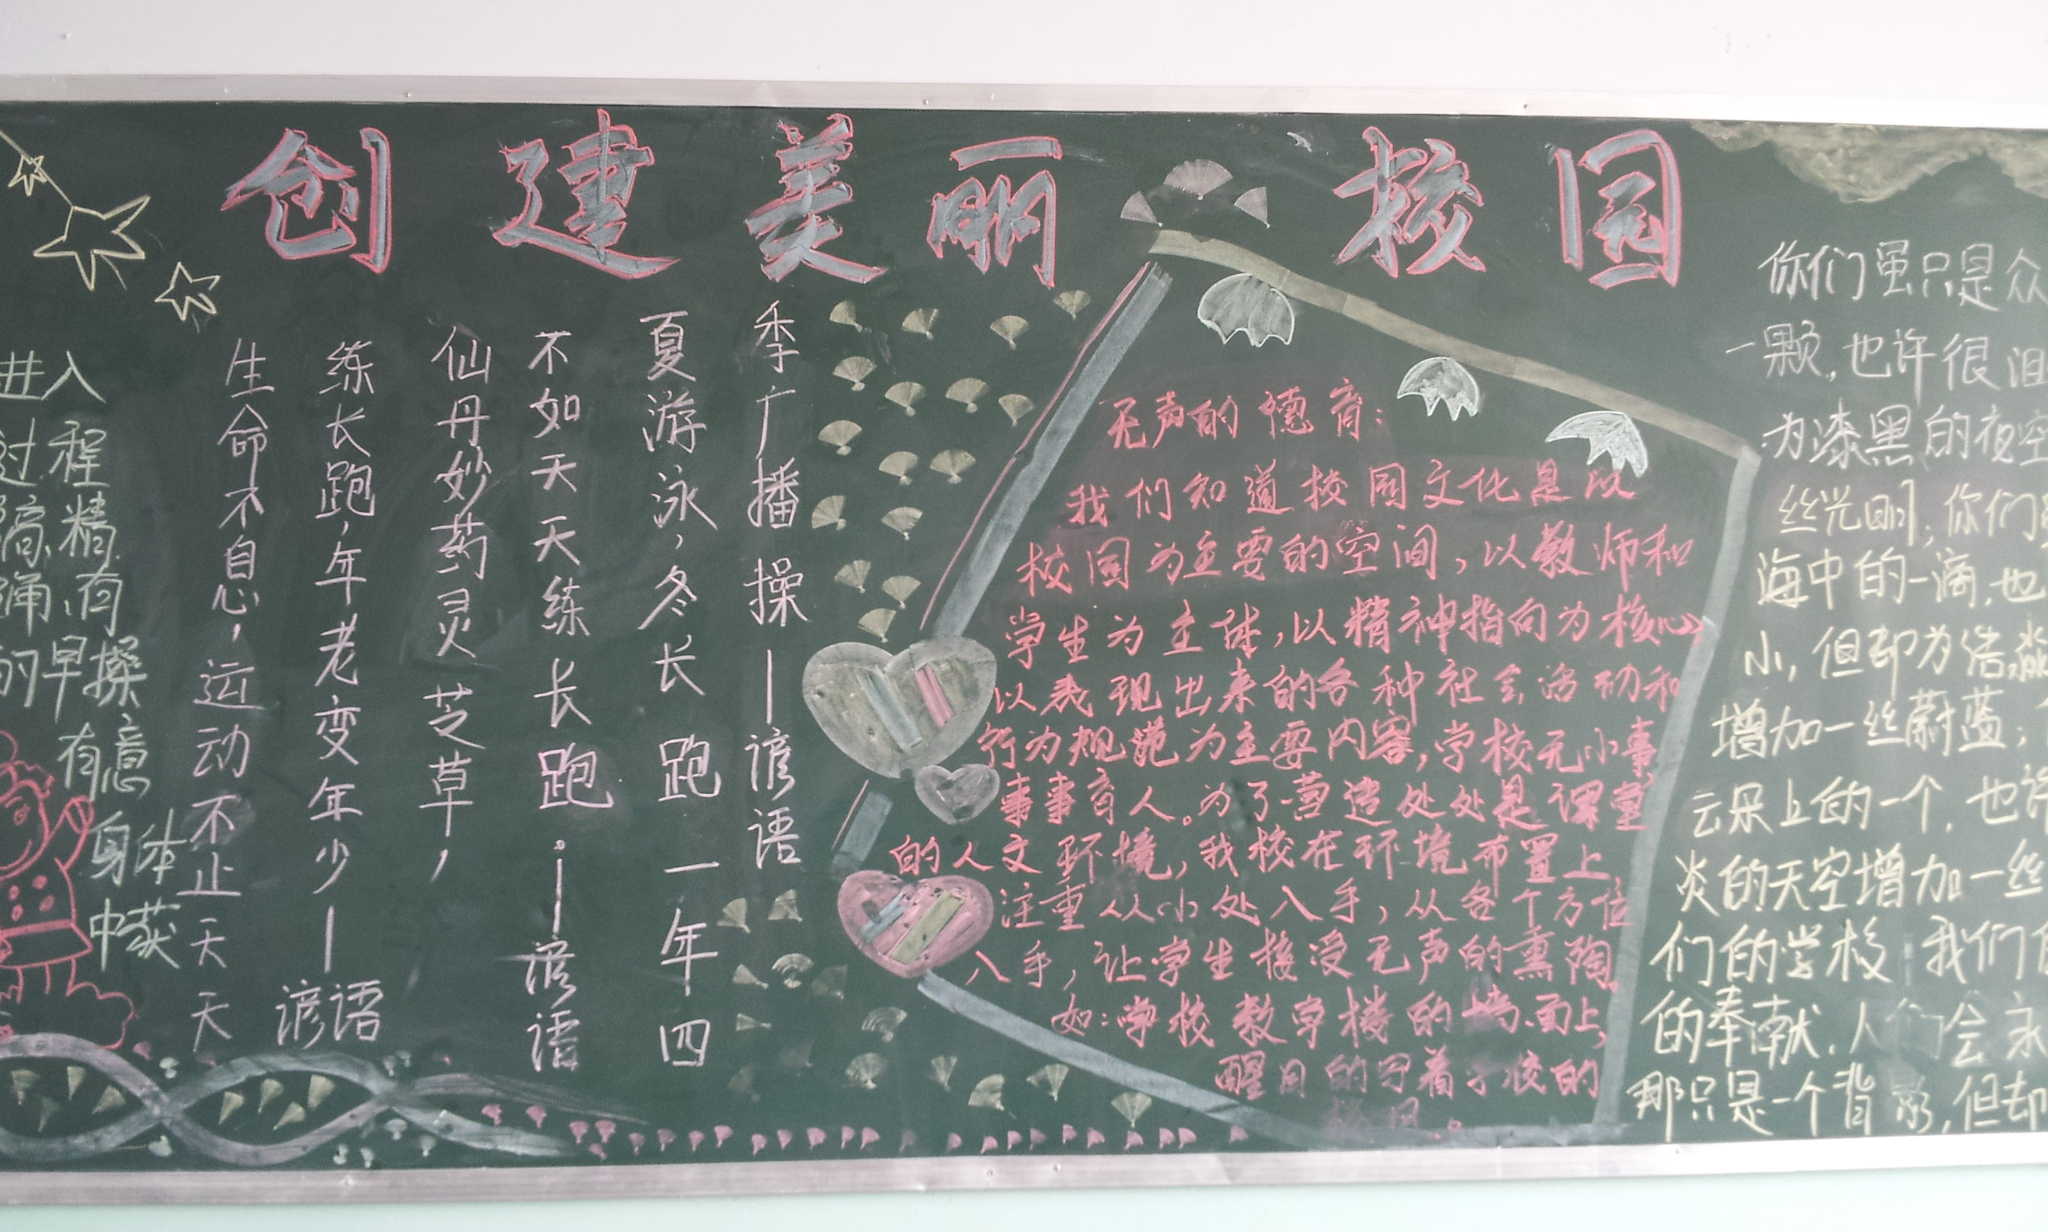 创建美丽校园
进入
过程
精
诵,有
的早操
有意
身体
中获
生命不息，运动不止天天
练长跑，年老变年少—谚语
仙丹妙药灵芝草，
不如天天练长跑。—谚语
夏游泳，冬长跑 一年四
季广播操—谚语
无声的德育：
我们知道校园文化是以
校园为主要的空间，以教师和
学生为主体，以精神指向为核心
以表现出来的各种社会活动和
行为规范为主要内容，学校无小事
事事育人。为了营造处处是课堂
的人文环境，我校在环境布置上，
注重从小处入手，从各个方位
入手，让学生接受无声的熏陶
如：学校教学楼的墙面上，
醒目的写着学校的
你们虽只是众
一颗，也许很
为漆黑的夜空
丝光明；你们
海中的一滴，也
小，但却为浩淼
增加一丝蔚蓝；
云朵上的一个，也许
炎的天空增加一丝
们的学校 我们
的奉献，人们会永
那只是一个背影，但却